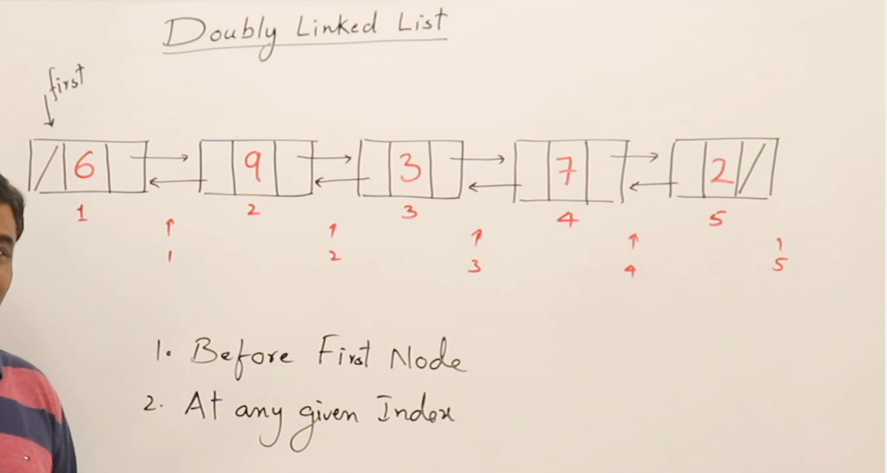 Doubly Linked List
first
6 9 3 7 2
1 2 3 4 5
1 2 3 4 5
1. Before First Node
2. At any given Index